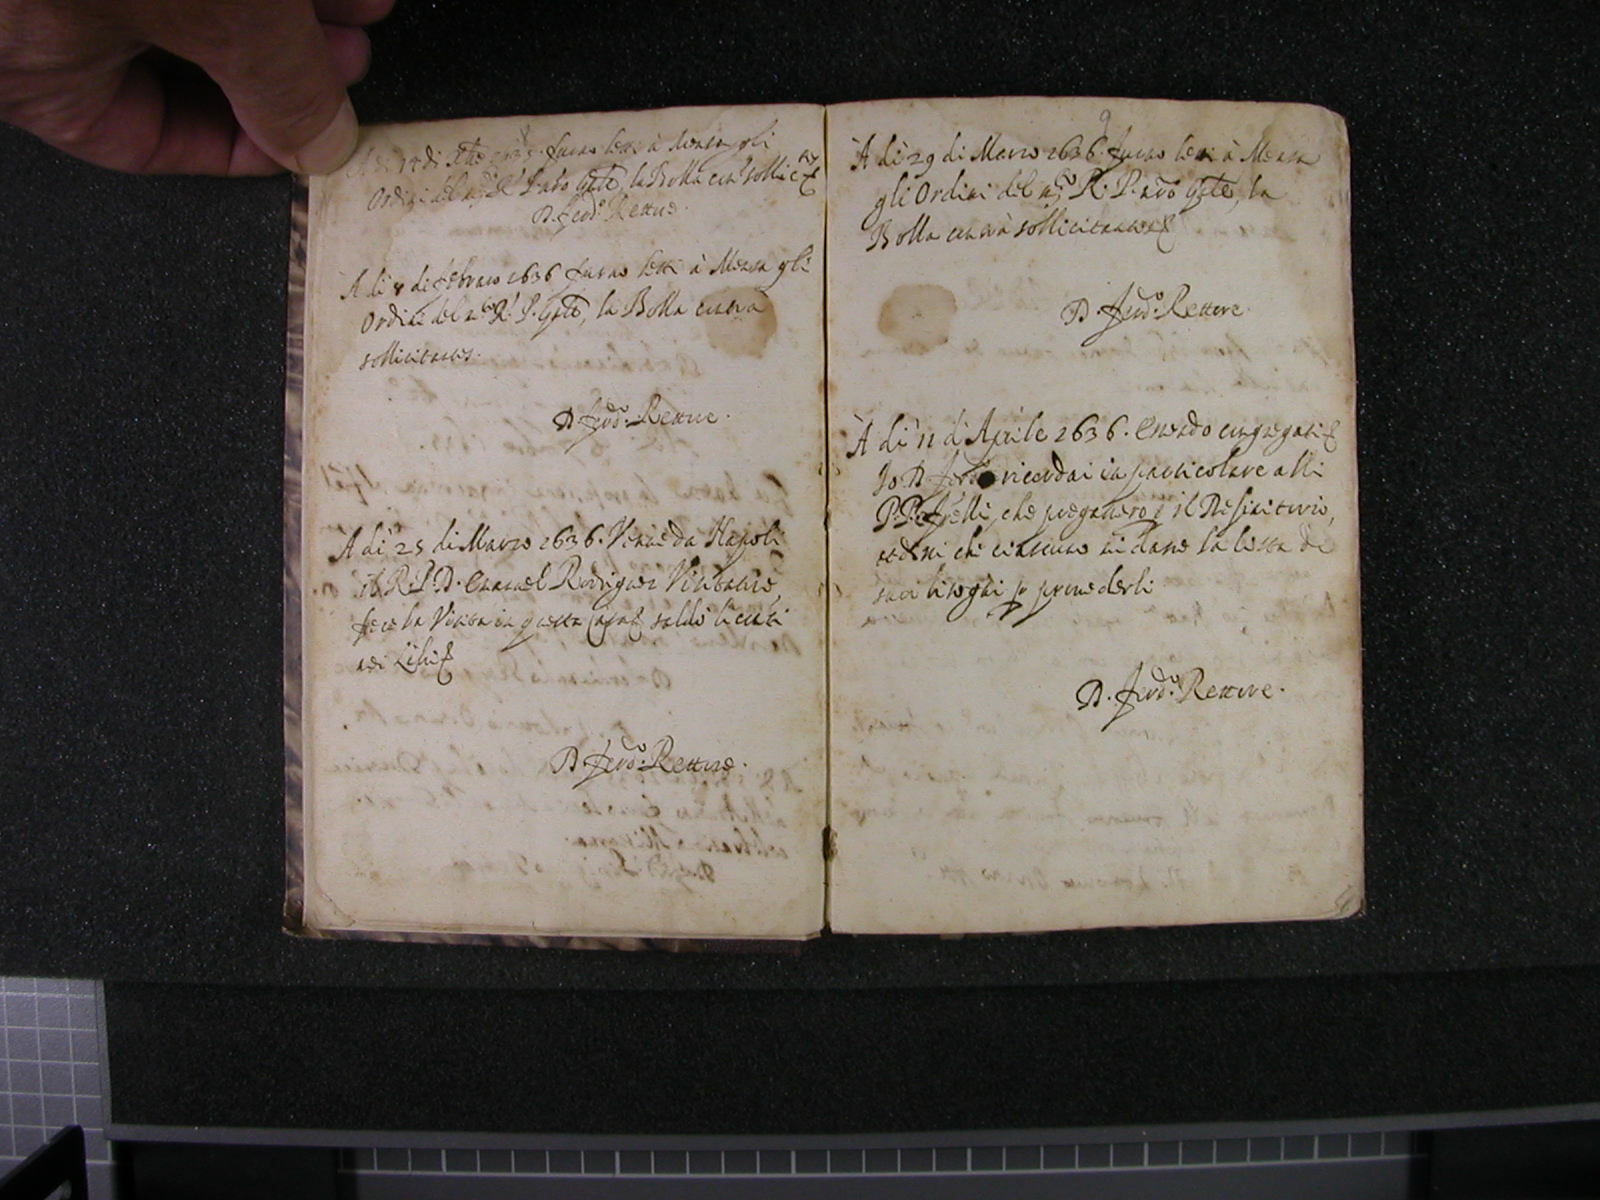 A di 14 di Xbre 1635. furno letti à Mensa gli
Ordini del nro R. P. nro Gñle, la Bolla contra sollicit
D. Ferdo. Rettore.
A di 8 di febraro 1636 furno letti à Mensa gli
Ordini del nro R. P. Gñle, la Bolla contra
sollicitantes.
D. Ferdo. Rettore.
A di 25 di Marzo 1636. Venne da Napoli
il R. P. D. Emanuel Rodriguez Visitatore,
fece la Visita in questa Casa saldò li conti
nei Libri
D. Ferdo. Rettore.
9
A di 29 di Marzo 1636. furno letti à Mensa
gli Ordini del nro R. P. nro Gñle, la
Bolla contra sollicitantes
D. Ferdo. Rettore.
A di 11 d'Aprile 1636. Essendo congregati
Io D. Ferdo ricordai in particolare alli
P.P. Frelli, che pregassero p il Refettorio,
ordini che ciascuno mi dasse la lista de
suoi bisogni p provederli
D. Ferdo. Rettore.